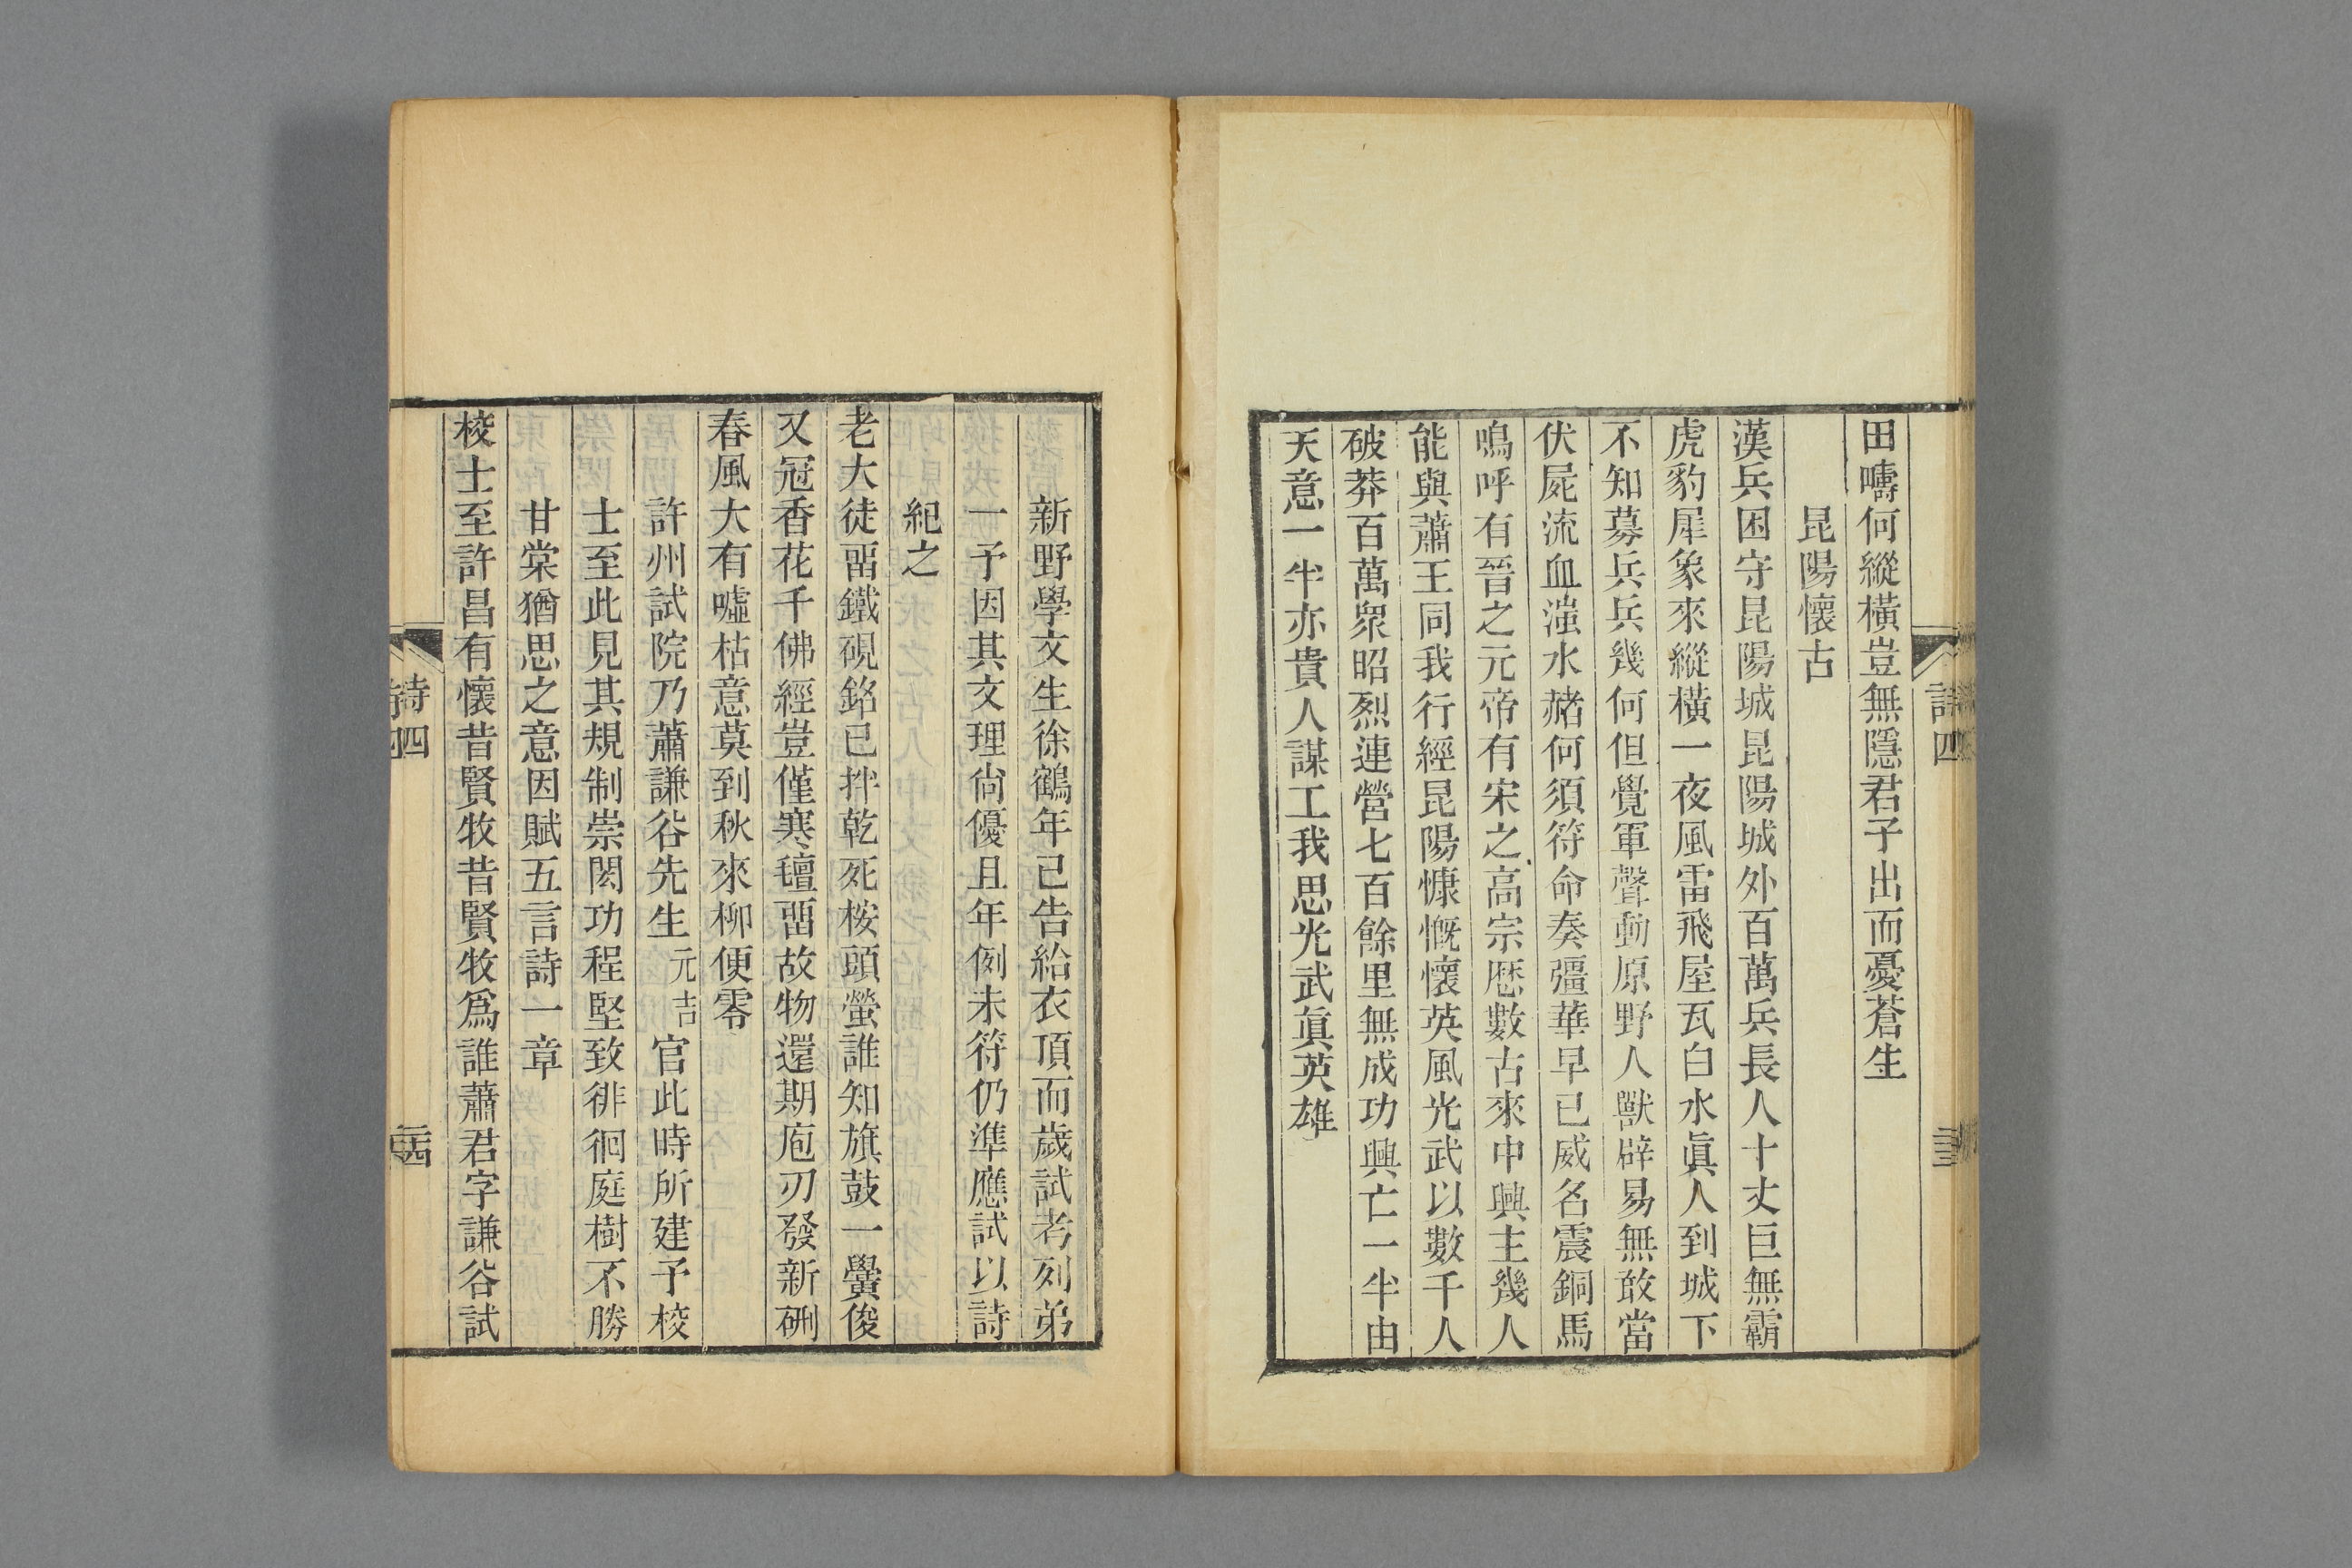 田疇何縱橫豈無隱君子出而憂蒼生
昆陽懷古
漢兵困守昆陽城昆陽城外百萬兵長人十丈巨無霸
虎豹犀象來縱橫一夜風雷飛屋瓦白水眞人到城下
不知募兵兵幾何但覺軍聲動原野人獸辟易無敢當
伏屍流血滍水赭何須符命奏彊華早已威名震銅馬
嗚呼有晉之元帝有宋之高宗厯數古來中興主幾人
能與蕭王同我行經昆陽慷慨懷英風光武以數千人
破莽百萬衆昭烈連營七百餘里無成功興亡一半由
天意一半亦貴人謀工我思光武眞英雄
詩四
新野學文生徐鶴年已告給衣頂而歲試考列弟
一予因其文理尙優且年例未符仍準應試以詩
紀之
老大徒畱鐵硯銘已拌乾死桉頭螢誰知旗鼓一黌俊
又冠香花千佛經豈僅寒氊畱故物還期庖刃發新硎
春風大有噓枯意莫到秋來柳便零
許州試院乃蕭謙谷先生元吉官此時所建予校
士至此見其規制崇閎功程堅致徘徊庭樹不勝
甘棠猶思之意因賦五言詩一章
校士至許昌有懷昔賢牧昔賢牧爲誰蕭君字謙谷試
詩四